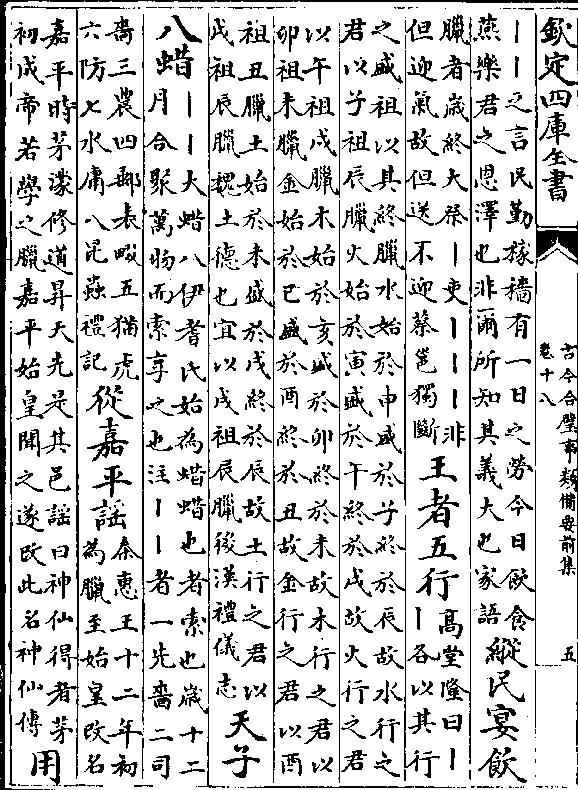 欽定四庫全書
古今合璧事類備要前集
卷十八
五
｜｜之言民勤稼穡有一日之勞今日飲食
燕樂君之恩澤也非爾所知其義大也家語
縱民宴飲
臘者歲終大祭｜吏｜｜｜｜非
但迎氣故但送不迎蔡邕獨斷
王者五行
髙堂隆曰｜
｜各以其行
之盛祖以其終臘水始於申盛於子終於辰故水行之
君以子祖辰臘火始於寅盛於午終於戌故火行之君
以午祖戌臘木始於亥盛於卯終於未故木行之君以
卯祖未臘金始於巳盛於酉終於丑故金行之君以酉
祖丑臘土始於未盛於戌終於辰故土行之君以
戌祖辰臘魏土德也宜以戌祖辰臘後漢禮儀志
天子
八蜡
｜｜大蜡八伊耆氏始為蜡蜡也者索也歳十二
月合聚萬物而索享之也注｜｜者一先嗇二司
嗇三農四郵表畷五猫虎
六防七水庸八昆蟲禮記
從嘉平謡
秦惠王十二年初
為臘至始皇改名
嘉平時茅濛修道昇天先是其邑謡曰神仙得者茅
初成帝若學之臘嘉平始皇聞之遂改此名神仙傳
用